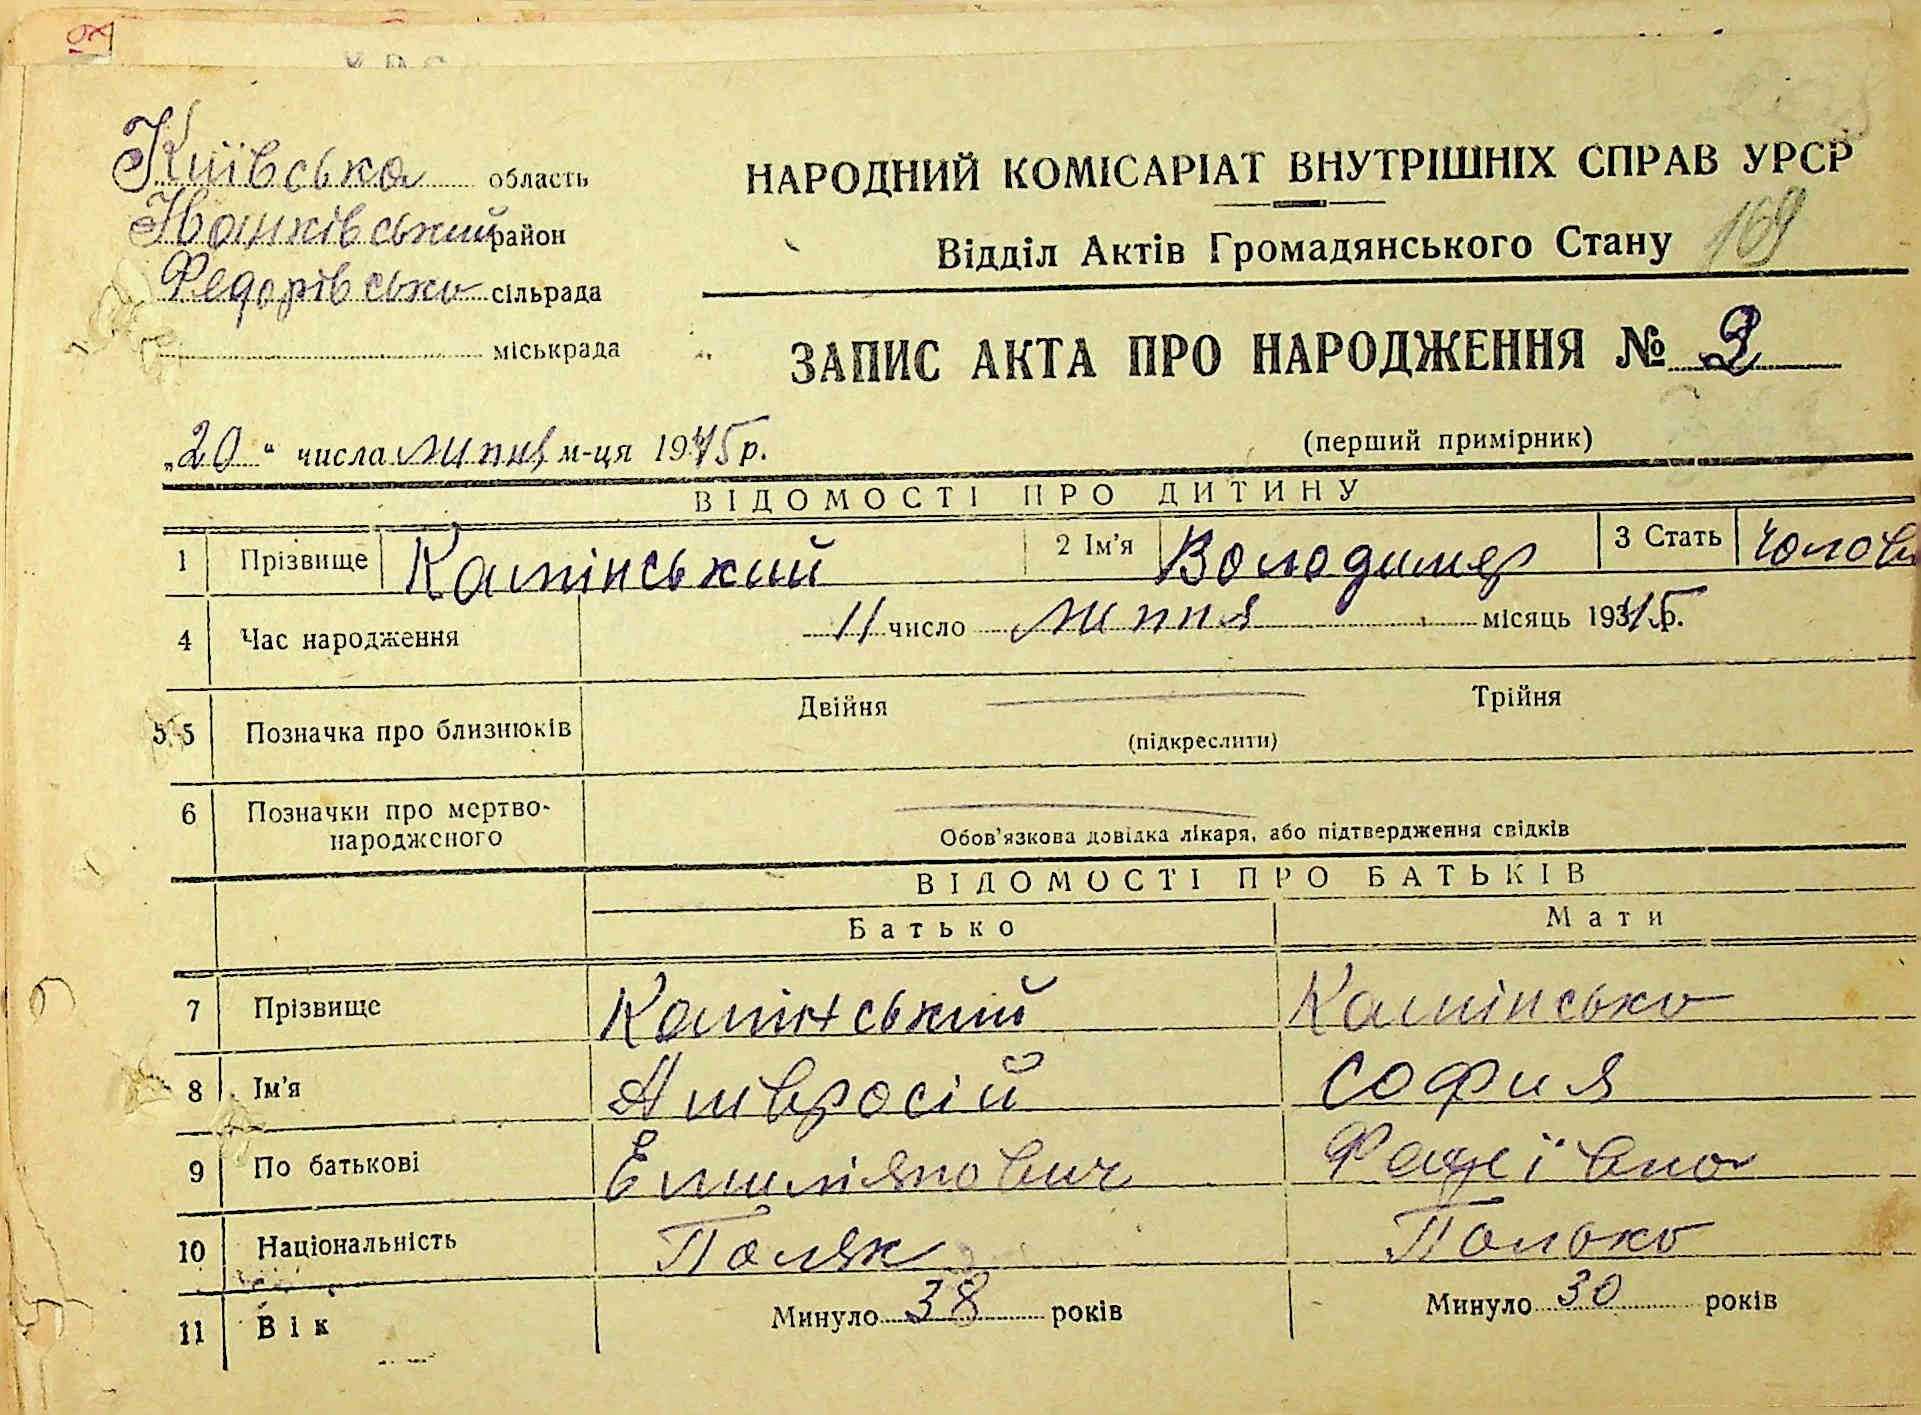 Київська область
Іванківський район
Федорівська сільрада
міськрада
НАРОДНИЙ КОМІСАРІАТ ВНУТРІШНІХ СПРАВ УРСР
Відділ Актів Громадянського Стану
169
ЗАПИС АКТА ПРО НАРОДЖЕННЯ №
„20“ числа липня м-ця 1945 р.
(перший примірник)
ВІДОМОСТІ ПРО ДИТИНУ
1 Прізвище Камінський 2 Ім'я Володимер 3 Стать чолов
4 Час народження 11 число липня місяць 1945р.
5 Позначка про близнюків Двійня Трійня
(підкреслити)
6 Позначки про мертво-
народженого
Обов'язкова довідка лікаря, або підтвердження свідків
ВІДОМОСТІ ПРО БАТЬКІВ
Батько Мати
7 Прізвище Камінський Камінська
8 Ім'я Амвросій София
9 По батькові Емиліянович
10 Національність Поляк Полька
11 Вік Минуло 38 років Минуло 30 років